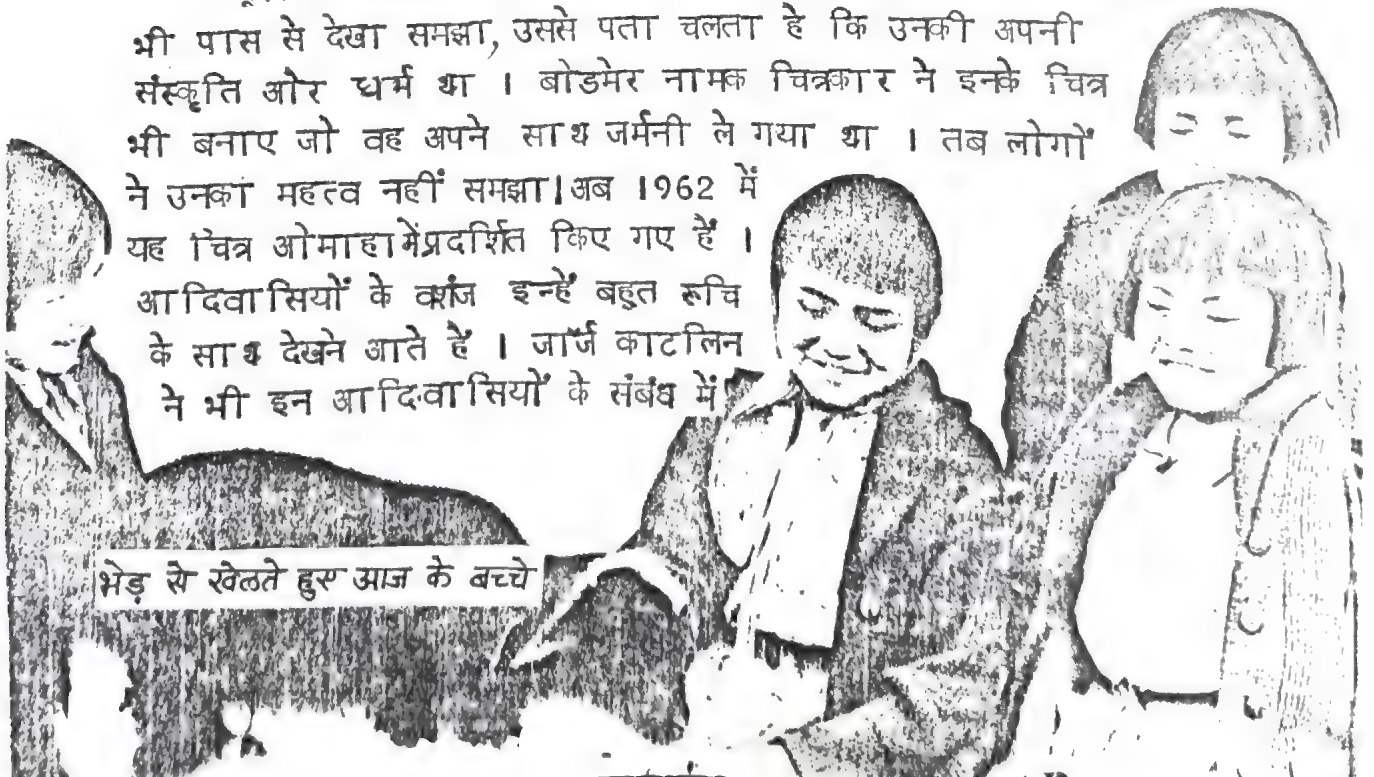 भी पास से देखा समझा, उससे पता चलता है कि उनकी अपनी
संस्कृति ओर धर्म था । बोडमेर नामक चित्रकार ने इनके चित्र
भी बनाए जो वह अपने साथ जर्मनी ले गया था । तब लोगों
ने उनका महत्व नहीं समझा।अब 1962 में
यह चित्र ओमाहा मेंप्रदर्शित किए गए हैं ।
आदिवासियों के वशंज इन्हें बहुत रूचि
के साथ देखने आते हैं । जॉर्ज काटलिन
ने भी इन आदिवासियों के संबंध में
भेड़ से खेलते हुए आज के बच्चे